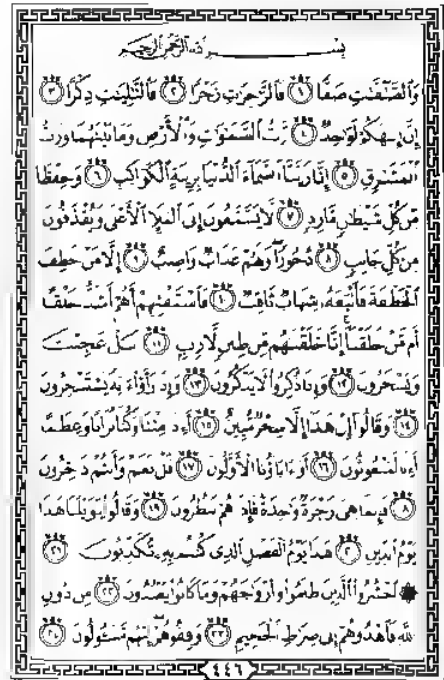 بِسْمِ اللَّهِ الرَّحْمَٰنِ الرَّحِيمِ
وَالصَّافَّاتِ صَفًّا ﴿١﴾ فَالزَّاجِرَاتِ زَجْرًا ﴿٢﴾ فَالتَّالِيَاتِ ذِكْرًا ﴿٣﴾
إِنَّ إِلَٰهَكُمْ لَوَاحِدٌ ﴿٤﴾ رَّبُّ السَّمَاوَاتِ وَالْأَرْضِ وَمَا بَيْنَهُمَا وَرَبُّ
الْمَشَارِقِ ﴿٥﴾ إِنَّا زَيَّنَّا السَّمَاءَ الدُّنْيَا بِزِينَةٍ الْكَوَاكِبِ ﴿٦﴾ وَحِفْظًا
مِّن كُلِّ شَيْطَانٍ مَّارِدٍ ﴿٧﴾ لَّا يَسَّمَّعُونَ إِلَى الْمَلَإِ الْأَعْلَىٰ وَيُقْذَفُونَ
مِن كُلِّ جَانِبٍ ﴿٨﴾ دُحُورًا وَلَهُمْ عَذَابٌ وَاصِبٌ ﴿٩﴾ إِلَّا مَنْ خَطِفَ
الْخَطْفَةَ فَأَتْبَعَهُ شِهَابٌ ثَاقِبٌ ﴿١٠﴾ فَاسْتَفْتِهِمْ أَهُمْ أَشَدُّ خَلْقًا
أَم مَّنْ خَلَقْنَا إِنَّا خَلَقْنَاهُم مِّن طِينٍ لَّازِبٍ ﴿١١﴾ بَلْ عَجِبْتَ
وَيَسْخَرُونَ ﴿١٢﴾ وَإِذَا ذُكِّرُوا لَا يَذْكُرُونَ ﴿١٣﴾ وَإِذَا رَأَوْا آيَةً يَسْتَسْخِرُونَ
﴿١٤﴾ وَقَالُوا إِنْ هَٰذَا إِلَّا سِحْرٌ مُّبِينٌ ﴿١٥﴾ أَإِذَا مِتْنَا وَكُنَّا تُرَابًا وَعِظَامًا
أَإِنَّا لَمَبْعُوثُونَ ﴿١٦﴾ أَوَآبَاؤُنَا الْأَوَّلُونَ ﴿١٧﴾ قُلْ نَعَمْ وَأَنتُمْ دَاخِرُونَ
﴿١٨﴾ فَإِنَّمَا هِيَ زَجْرَةٌ وَاحِدَةٌ فَإِذَا هُمْ يَنظُرُونَ ﴿١٩﴾ وَقَالُوا يَا وَيْلَنَا هَٰذَا
يَوْمُ الدِّينِ ﴿٢٠﴾ هَٰذَا يَوْمُ الْفَصْلِ الَّذِي كُنتُم بِهِ تُكَذِّبُونَ ﴿٢١﴾
۞ احْشُرُوا الَّذِينَ ظَلَمُوا وَأَزْوَاجَهُمْ وَمَا كَانُوا يَعْبُدُونَ ﴿٢٢﴾ مِن دُونِ
اللَّهِ فَاهْدُوهُمْ إِلَىٰ صِرَاطِ الْجَحِيمِ ﴿٢٣﴾ وَقِفُوهُمْ إِنَّهُم مَّسْئُولُونَ ﴿٢٤﴾
٤٤٦